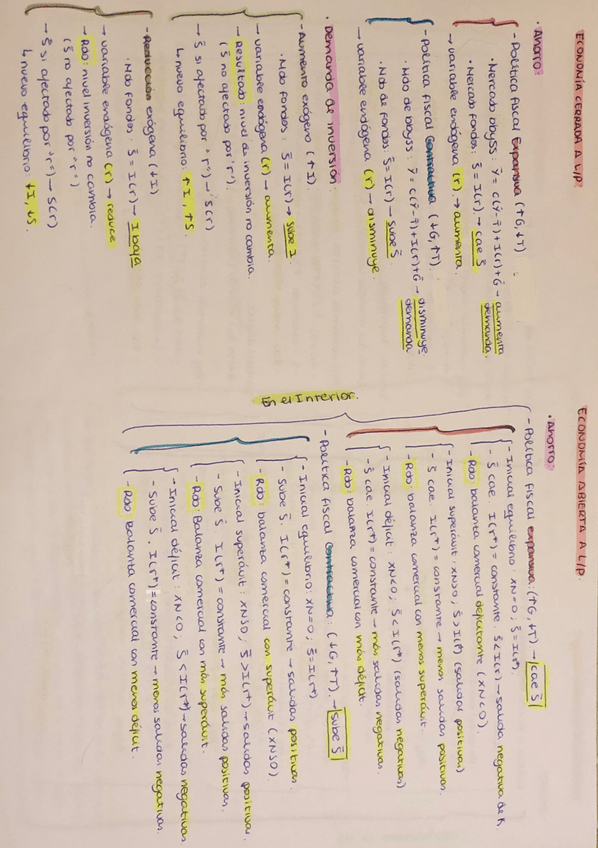 ECONOMÍA CERRADA A L/P.
· Ahorro:
- Política fiscal expansiva (↑G, ↓T)
· Mercado bbyss: Ȳ = C(Ȳ-T̄)+I(r)+Ḡ → aumenta demanda.
· Mercado fondos: S̄ = I(r) → cae S̄
→ variable endógena (r) → aumenta.
- Política fiscal contractiva (↓G, ↑T)
· Mdo de bbyss: Ȳ = C(Ȳ-T̄)+I(r)+Ḡ → disminuye demanda
· Mdo de fondos: S̄ = I(r) → sube S̄
→ variable endógena (r) → disminuye.
· Demanda de inversión
- Aumento exógeno (↑I)
· Mdo fondos: S̄ = I(r) → sube I.
→ variable endógena (r) → aumenta.
→ Resultado: nivel de inversión no cambia.
(S̄ no afectado por "r").
→ S̄ si afectado por "r" → S(r)
↳ nuevo equilibrio ↑I, ↑S.
- Reducción exógena (↓I)
· Mdo fondos: S̄ = I(r) → I baja
→ variable endógena (r) → reduce
→ Rdo: nivel inversión no cambia.
(S̄ no afectado por "r")
→ S̄ si afectado por "r" → S(r)
↳ nuevo equilibrio ↓I, ↓S.
ECONOMÍA ABIERTA A L/P.
· Ahorro:
- Política fiscal expansiva (↑G, ↓T) → cae S̄
- Inicial equilibrio: XN=0, S̄ = I(r*).
- S̄ cae. I(r*) = constante. S̄ < I(r) → salida negativa de K.
- Rdo: balanza comercial deficitante (XN<0).
- Inicial superávit: XN>0, S̄ > I(r*) (salidas positivas)
- S̄ cae. I(r*) = constante → menos salidas positivas.
- Rdo: balanza comercial con menos superávit.
- Inicial déficit: XN<0, S̄ < I(r*) (salidas negativas)
- S̄ cae I(r*) = constante → más salidas negativas.
- Rdo: balanza comercial con más déficit.
- Política fiscal contractiva: (↓G, ↑T) → sube S̄
- Inicial equilibrio: XN=0, S̄ = I(r*)
- Sube S̄. I(r*) = constante → salidas positivas.
- Rdo: balanza comercial con superávit (XN>0)
- Inicial superávit: XN>0, S̄ > I(r*) → salidas positivas.
- Sube S̄ I(r*) = constante → más salidas positivas.
- Rdo: Balanza comercial con más superávit.
- Inicial déficit: XN<0, S̄ < I(r*) → salidas negativas
- Sube S̄. I(r*) = constante → menos salidas negativas.
- Rdo: Balanza comercial con menos déficit.
En el Interior.